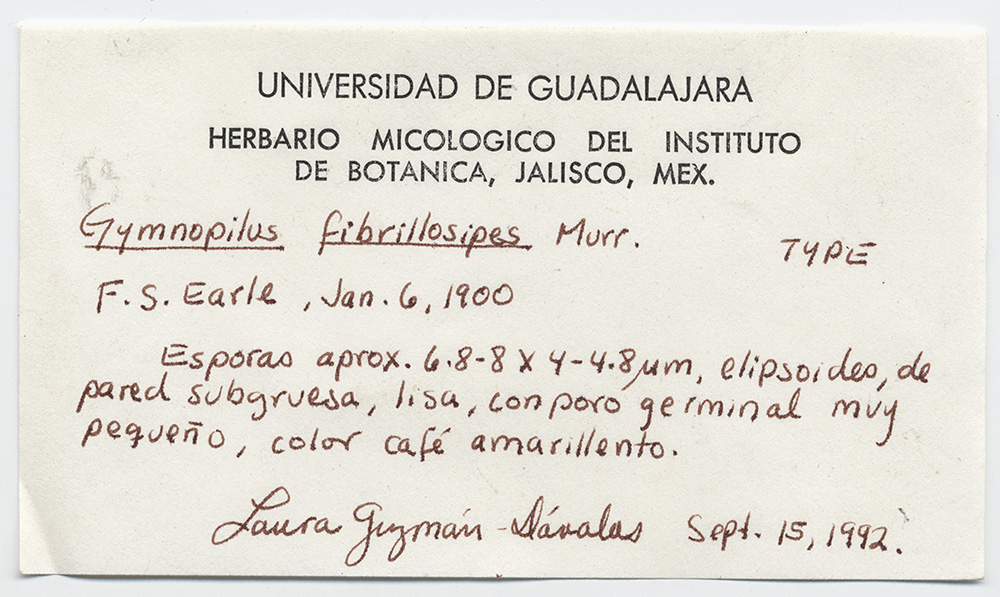 UNIVERSIDAD DE GUADALAJARA
HERBARIO MICOLOGICO DEL INSTITUTO
DE BOTANICA, JALISCO, MEX.
Gymnopilus fibrillosipes Murr. TYPE
F. S. Earle, Jan. 6, 1900
Esporas aprox. 6.8-8 x 4-4.8 µm, elipsoides, de
pared subgruesa, lisa, con poro germinal muy
pequeño, color café amarillento.
Laura Guzmán-Dávalos Sept. 15, 1992.